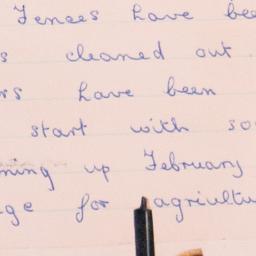 Fences have bee
s cleaned out
rs have been
start with so
ning up February
ge for agriultu